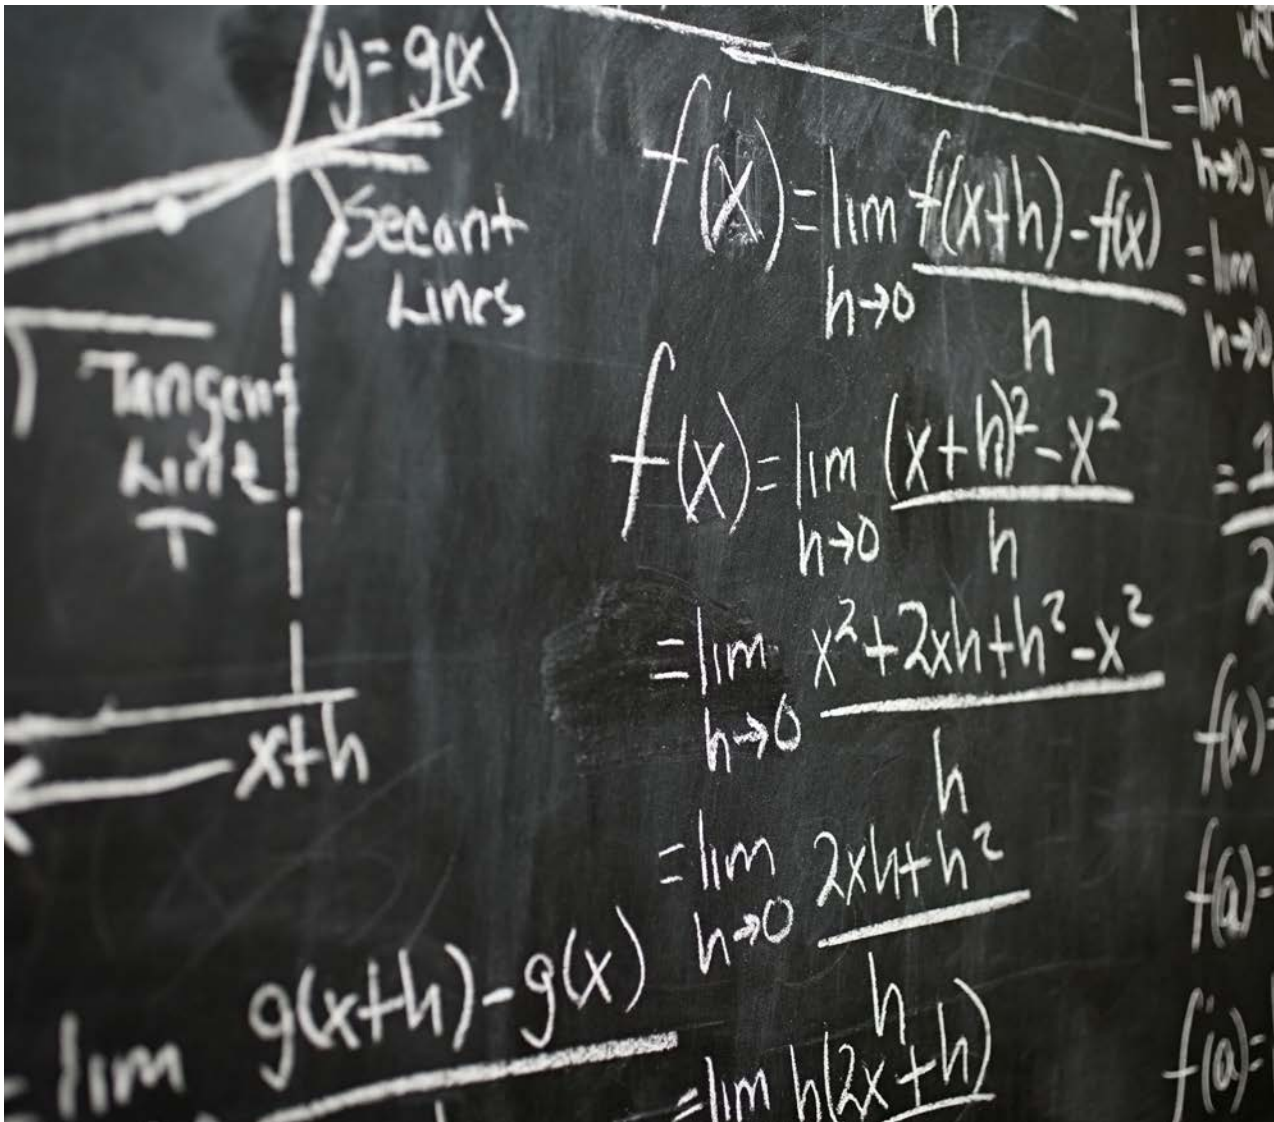 y = g(x)
Secant
Lines
Tangent
Line
T
x+h
g(x+h) - g(x)
= lim
h
f'(x) = lim f(x+h) - f(x)
h→0 h
f(x) = lim (x+h)² - x²
h→0 h
= lim x² + 2xh + h² - x²
h→0 h
= lim 2xh + h²
h→0 h
= lim h(2x+h)
= lim
h→0
= lim
h→0
= 1
2
f(x) =
f(a) =
f'(a) =